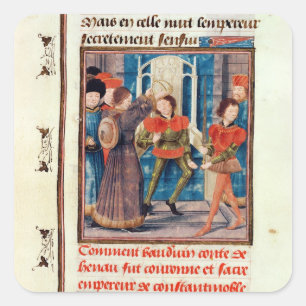 Mais en celle nuit lempereur
secretement senfui
Comment bauduin conte de
henau fut couronne et sacre
empereur de constantnoble